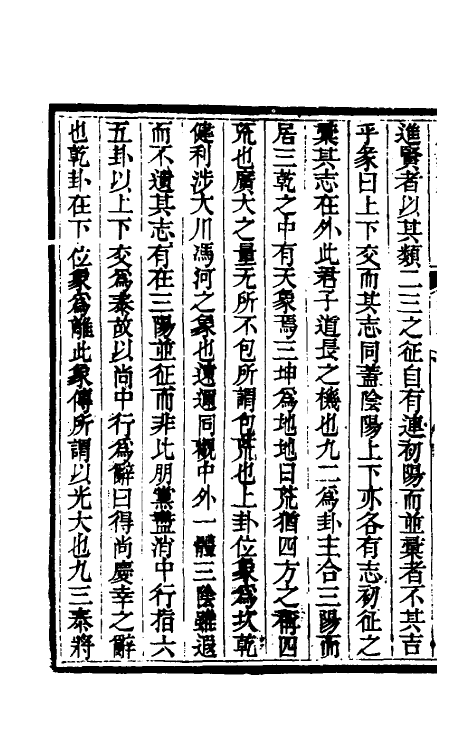 進賢者以其類二三之征自有連初陽而並彙者不其吉
乎彖曰上下交而其志同蓋陰陽上下亦各有志初征之
彙其志在外此君子道長之機也九二為卦主合三陽而
居三乾之中有天象焉三坤為地地曰荒猶四方之稱四
荒也廣大之量无所不包所謂包荒也上卦位象為坎乾
健利涉大川馮河之象也遠邇同觀中外一體三陰雖遐
而不遺其志有在三陽並征而非比朋黨盡消中行指六
五卦以上下交為泰故以尚中行為辭曰得尚慶幸之辭
也乾卦在下位象為離此象傳所謂以光大也九三泰將